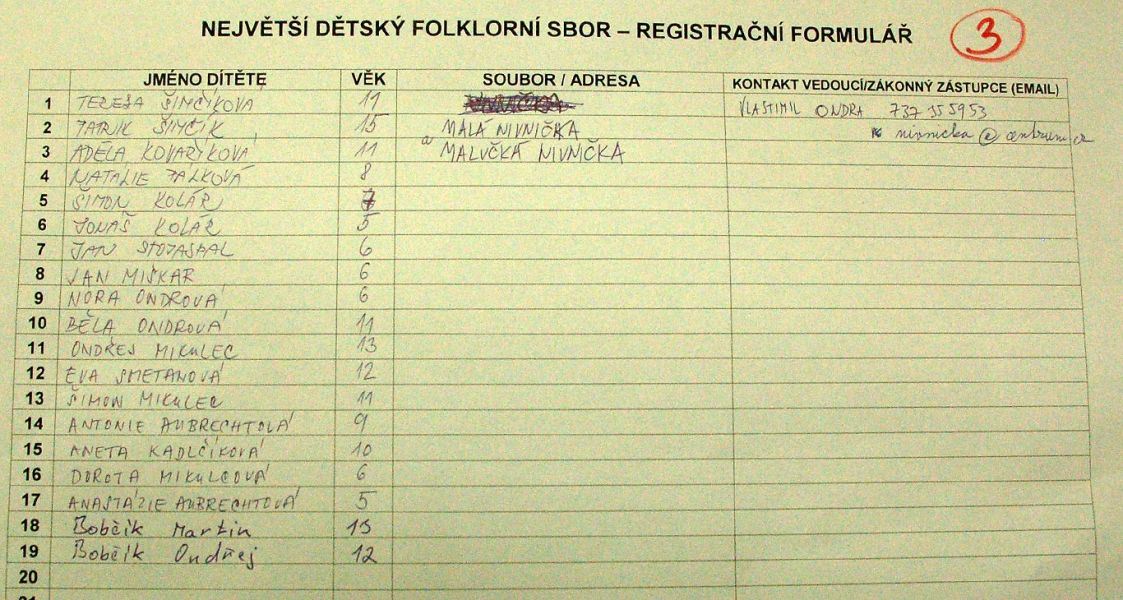 NEJVĚTŠÍ DĚTSKÝ FOLKLORNÍ SBOR – REGISTRAČNÍ FORMULÁŘ 3
JMÉNO DÍTĚTE VĚK SOUBOR / ADRESA KONTAKT VEDOUCÍ/ZÁKONNÝ ZÁSTUPCE (EMAIL)
1 TEREZA ŠIMČÍKOVA 11 VLASTIMIL ONDRA 737 355953
2 PATRIK ŠIMČÍK 15 MALÁ NIVNIČKA nivnicka@centrum.cz
3 ADÉLA KOVAŘÍKOVÁ 11 a MALUČKÁ NIVNIČKA
4 NATÁLIE 8
5 ŠIMON KOLÁŘ 7
6 JONÁŠ KOLÁŘ 5
7 JAN 6
8 JAN MIŠKAR 6
9 NORA ONDROVÁ 6
10 BĚLA ONDROVÁ 11
11 ONDŘEJ MIKULEC 13
12 EVA SMETANOVÁ 12
13 ŠIMON MIKULEC 11
14 ANTONIE AUBRECHTOVÁ 9
15 ANETA KADLČÍKOVÁ 10
16 DOROTA MIKULCOVÁ 6
17 ANASTÁZIE AUBRECHTOVÁ 5
18 Bobčík Martin 15
19 Bobčík Ondřej 12
20